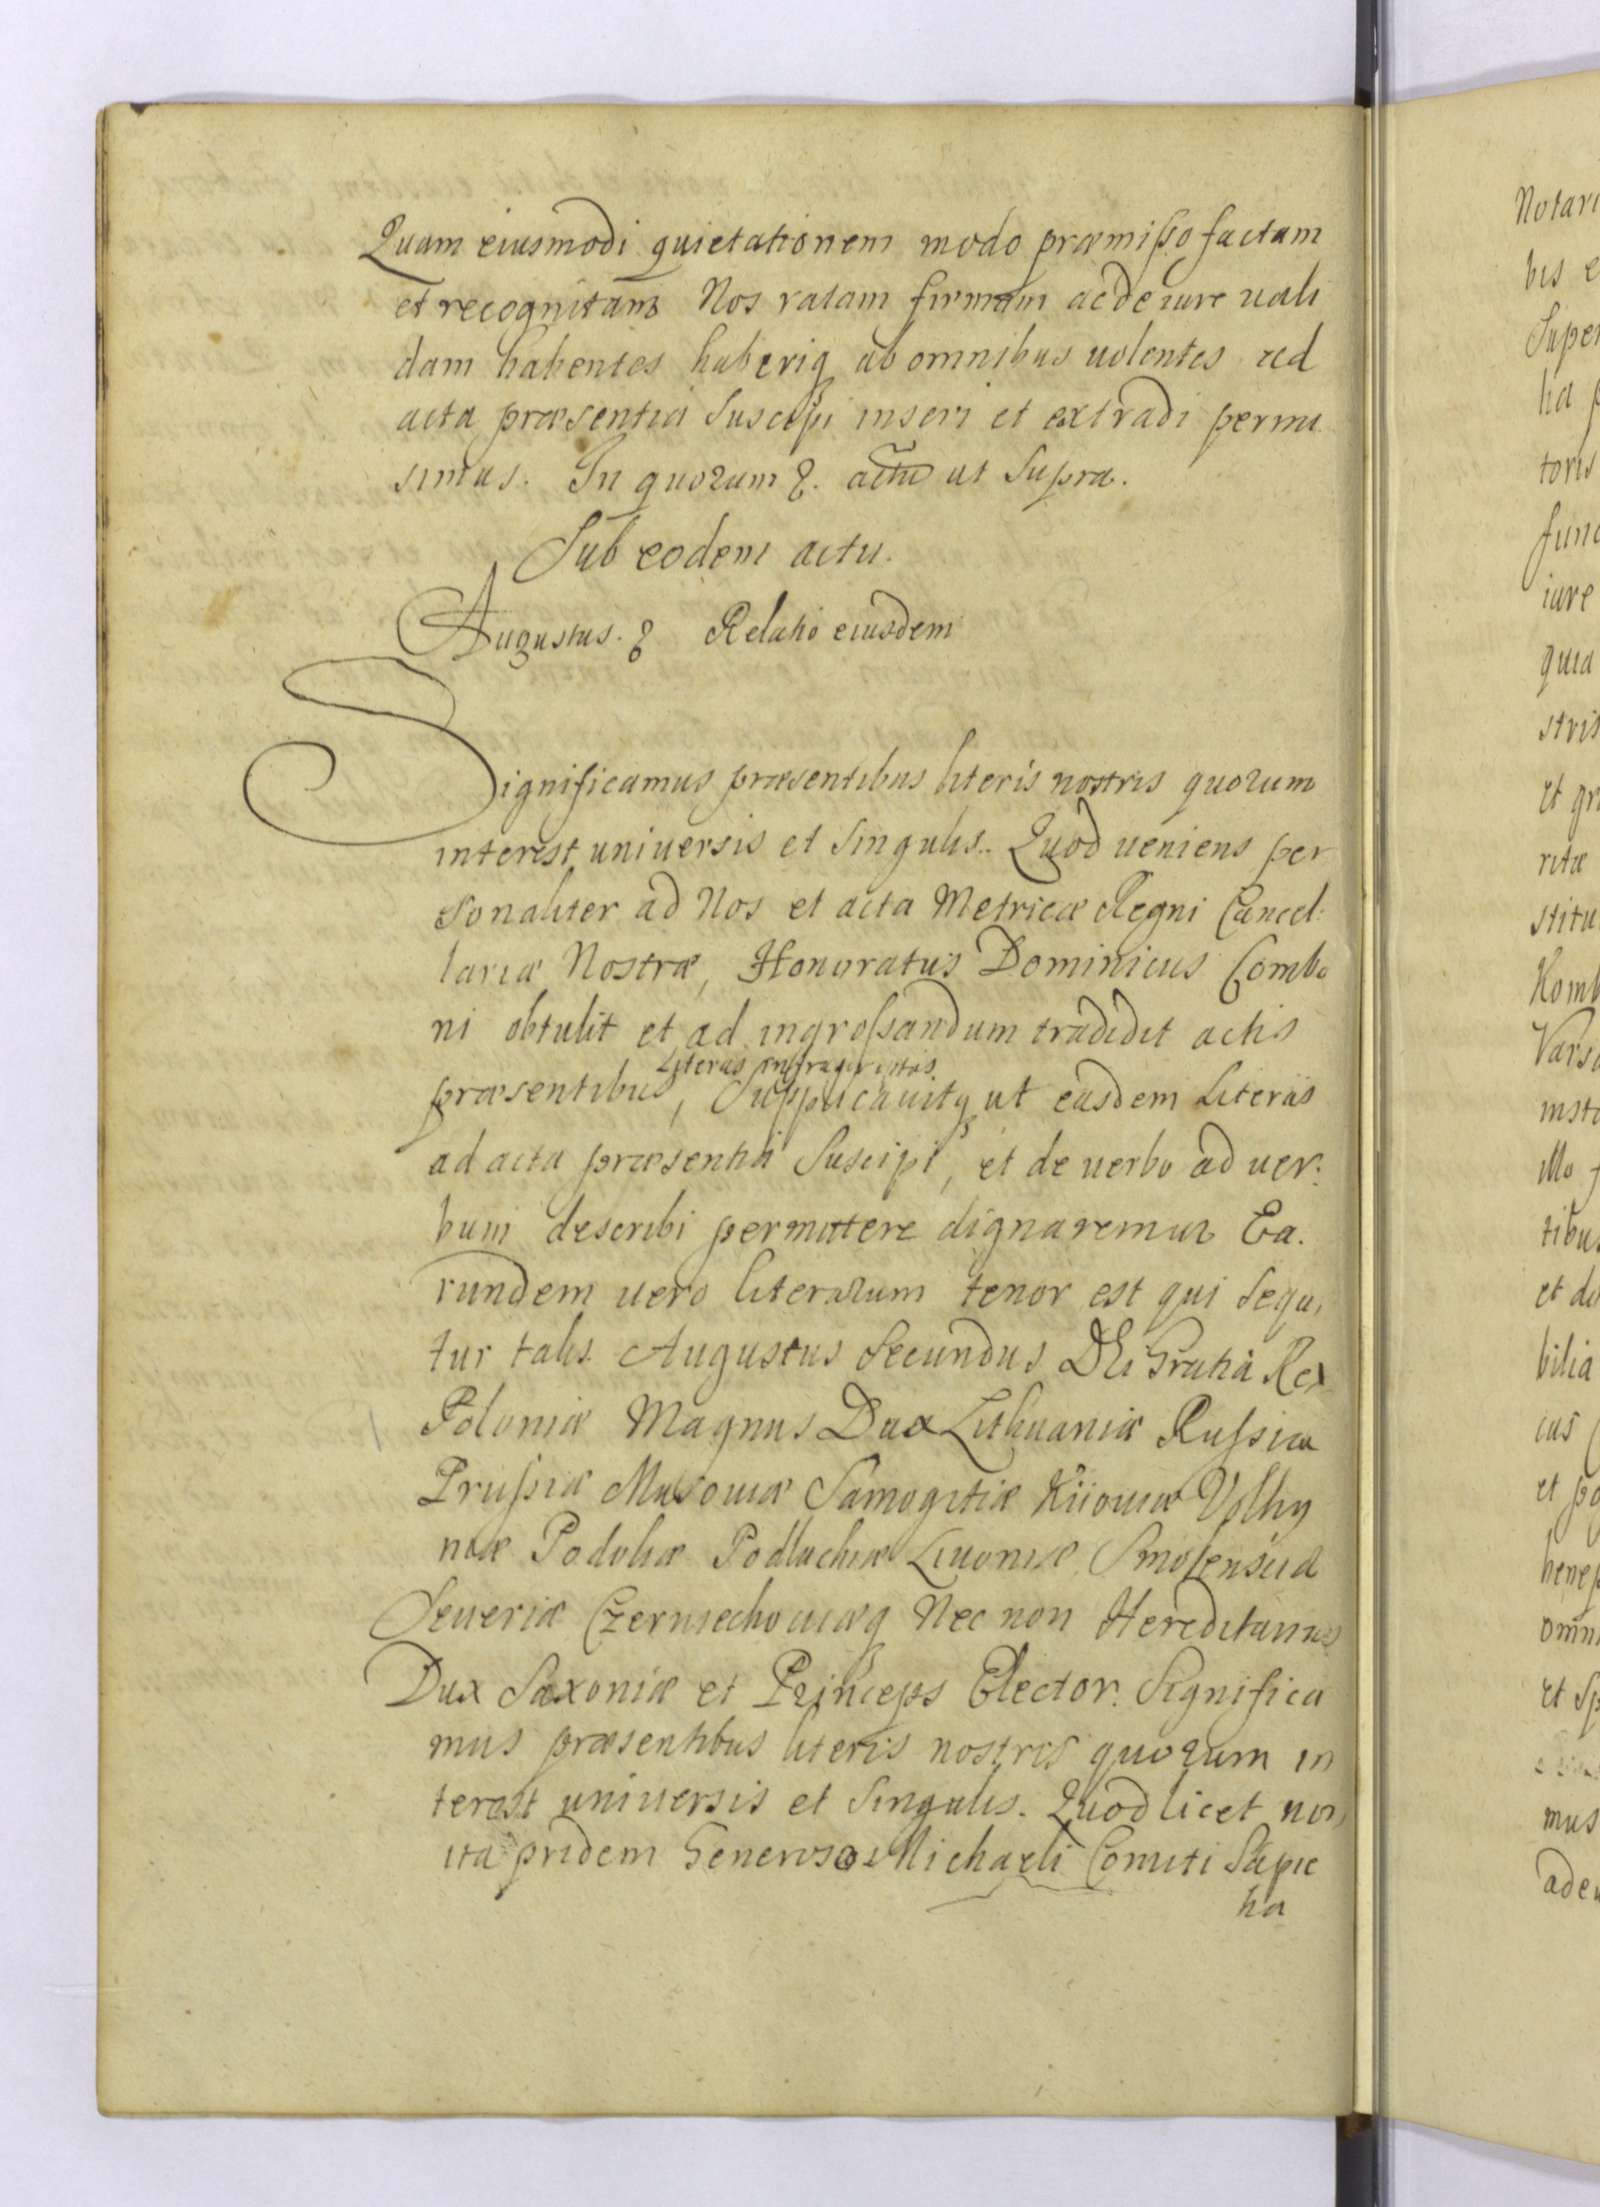 Quam eiusmodi quietationem modo præmisso factam
et recognitam Nos ratam firmam ac de iure vali
dam habentes haberiq ab omnibus uolentes ad
acta præsentia Suscipi inseri et extradi permi
simus. In quorum &. actu ut Supra.
Sub eodem actu.
Augustus. & Relatio eiusdem
Significamus præsentibus literis nostris quorum
interest universis et Singulis. Quod ueniens per
sonaliter ad Nos et acta Metricæ Regni Cancel:
lariæ Nostræ, Honoratus Dominicus Combo
ni obtulit et ad ingrossandum tradidit actis
Literas infrascriptas
præsentibus, Supplicauitq ut easdem Literas
ad acta præsentia Suscipi, et de uerbo ad uer:
bum describi permittere dignaremur Ea.
rundem uero literarum tenor est qui Sequi
tur talis. Augustus Secundus DEi Gratia Rex
Poloniæ Magnus Dux Lithuaniæ Russiæ
Prussiæ Masouiæ Samogitiæ Kiiouiæ Volhy
niæ Podoliæ Podlachiæ Liuoniæ Smolensciæ
Seueriæ Czerniechouiæq Nec non Hereditarius
Dux Saxoniæ et Princeps Elector. Significa
mus præsentibus literis nostris quorum in
terest uniuersis et Singulis. Quod licet non
ita pridem Generoso Michaeli Comiti Sapie
ha
Notari
bis e
Super
lia p
toris
func
iure
quia
stris
et gr
ritæ
stitu
Komb
Varsa
insta
illo f
tibus
et de
bilia
ius
et po
benep
omni
et Sp
mus
adeu